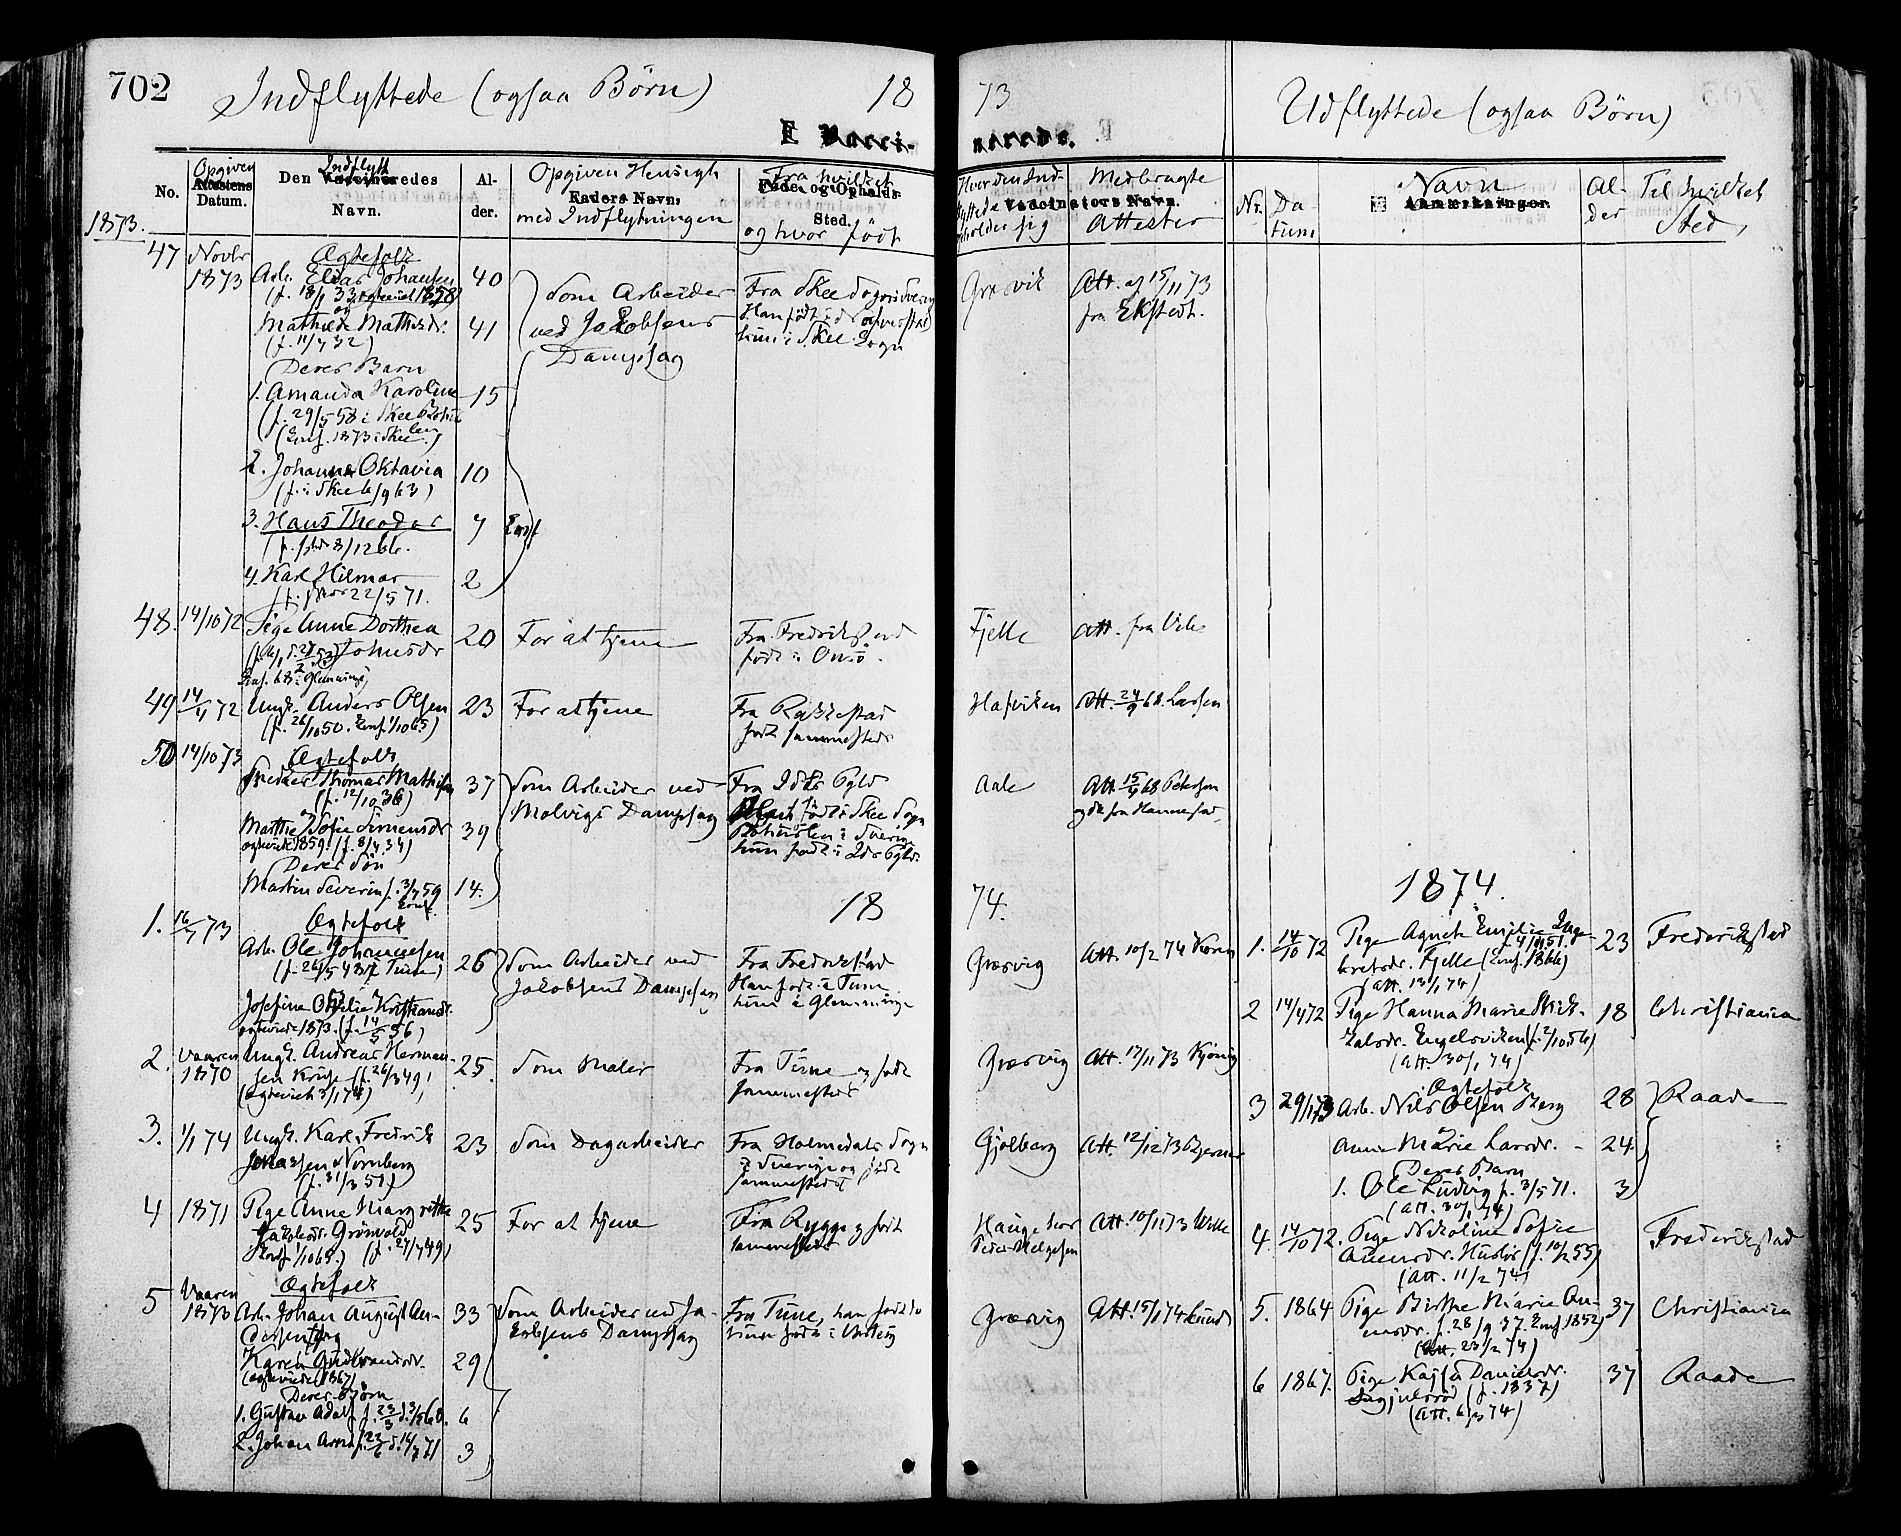 702
Indflyttede (ogsaa Børn)
18
E Vacci-
No.
Opgiven
Attestens
Datum.
Indflytt
Den Vaccineredes
Navn.
Al-
der.
Opgiven Hensigt
Faders Navn,
med Indflytningen
Fra hvilket
Føde- og Opholds-
Sted.
og hvor født
1873.
47 Novbr Ægtefolk
1873 Arb. Elias Johansen 40 Som Arbeider Fra Skee Sogn i Sverig
(f. 18/1 33 ægteviet 1858)
og
Mathilde Mathisdr. 41 ved Jakobsens
(f. 11/7 32) Dampsag hun i Skee Sogn
Deres Barn
1. Amanda Karoline 15
(f. 29/5 58 i Skee Bohus
(Conf. 1873 i Skee.) len
2. Johanna Oktavia 10
(f. i Skee 6/9 63)
3. Hans Theodor 7
8/12 66.
4. Karl Hilmar 2
22/5 71.
48. 14/10 72 Pige Anne Dorthea 20 For at tjene Fra Fredrikstad
Johnsdr født i Onsø.
Conf. 68 i Glemminge
49 14/4 72 Ungk. Anders Olsen 23 For at tjene Fra Rakkestad
(f. 26/10 50. Conf. 1/10 65) født sammesteds
50 14/10 73 Ægtefolk
Thomas Mathisen 37 Som Arbeider ved Fra Idde Pgld
(f. 12/10 36) Molvigs Dampsag født i Skee Sogn
Marthe Sofie Simensdr 39 Bohuslen i Sverige
ægteviet 1859. (f. 8/4 34) hun født i Idde Pgld.
Deres Søn
Martin Severin f. 3/7 59 14.
Conf.
18
1. 16/7 73 Ægtefolk
Arb. Ole Johannesen 26 Som Arbeider ved Fra Fredrikstad
(f. 26/5 48 i Tune) Jakobsens Dampsag Han født i Tune
Josefine Otilie Kristiansdr. hun i Glemminge
ægteviet 1873. (f. 14/5 56)
2. Vaaren Ungk. Andreas Herman- 25. Som Maler Fra Tune og født
1870 sen Kruse (f. 26/3 49) sammesteds
(ægteviet 3/1 74)
3. 1/1 74 Ungk. Karl Fredrik 23 Som Dagarbeider Fra Holmedals Sogn
Jonassen Nornberg i Sverige og født
(f. 31/3 51) sammesteds
4 1871 Pige Anne Margrethe 25 For at tjene Fra Rygge og født
Jakobsdr. Grönvold sammesteds
Conf. 1/10 65.) (f. 27/7 49)
Ægtefolk
5 Vaaren
1873 Arb. Johan August An- 33 Som Arbeider ved Ja- Fra Tune, han født do
dersen og kobsens Dampsag hun født i Varteig
Karen Gudbrandsdr. 29
(ægteviet 1867)
Deres Børn
1. Gustav Adolf 6
2. Johan 3
73
Udflyttede (ogsaa Børn)
nerede.
Hvor den Ind-
flyttede
opholder sig
Medbragte
Vaccinators Navn.
Attester
Nr.
Da-
tum
Navn
Anmærkninger.
Al-
der
Til hvilket
Sted,
Græsvik Att. af 15/11 73
fra Ekstedt.
Fjelle Att. fra
Hafviken Att. 24/9 68. Larsen
Aale Att. 15/4 68 Petersen
74.
1874.
Græsvig Att. 10/2 74
1. 14/10 72 Pige Agneth Emilie Inge- 23 Frederikstad
bretsdr. Fjelle (Conf. 1866)
(Att. 13/1 74)
2 14/4 72 Pige Hanna Marie 18 Christiania
Engelsviken (f. 2/10 56)
(Att. 30/1 74)
Græsvig Att. 17/11 73
Ægtefolk
3 29/1 73 Arb. Nils Olsen Berg 28 Raade
Anne Marie Larsdr. - 24
Deres Barn
1. Ole Ludvig f. 3/5 71. 3
(Att. 30/1 74)
Gjølberg Att. 12/12 73 Bjerner
Hauge hos Att. 10/11 73 Wille
Peder Helgesen
4. 14/10 72. Pige Nikoline Sofie Frederikstad
(f. 10/2 55)
(Att. 11/2 74)
Græsvig Att. 15/1 74 Lund
5. 1864 Pige Birthe Marie An- 37 Christiania
ensdr. f. 28/9 37. Conf. 1852)
(Att. 23/2 74)
6 1867. Pige Kajsa Danielsdr. 37 Raade
(f. 1837)
(Att. 6/3 74)